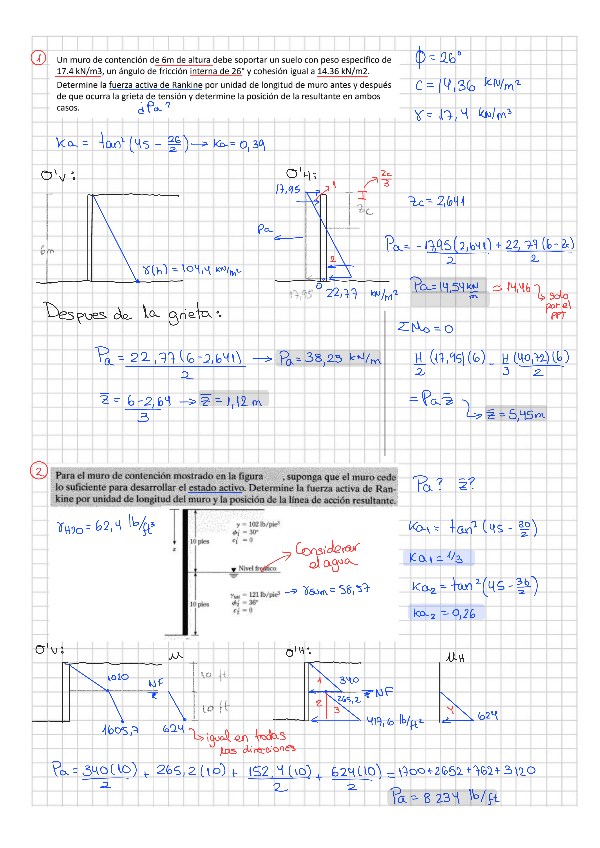 1 Un muro de contención de 6m de altura debe soportar un suelo con peso específico de
17.4 kN/m3, un ángulo de fricción interna de 26° y cohesión igual a 14.36 kN/m2.
Determine la fuerza activa de Rankine por unidad de longitud de muro antes y después
de que ocurra la grieta de tensión y determine la posición de la resultante en ambos
casos.
¿Pa?
ϕ = 26°
c = 14,36 kN/m²
γ = 17,4 kN/m³
Ka = tan² (45 - 26/2) → Ka = 0,39
σ'v:
6m
γ(h) = 104,4 kN/m²
σ'H:
17,95
1
zc/3
zc
Pa
2
17,95
0
22,77 kN/m²
zc = 2,641
Pa = -17,95(2,641)/2 + 22,77(6-zc)/2
Pa = 14,54 kN/m ≈ 14,46
solo por el PPT
Despues de la grieta:
Pa = 22,77(6-2,641)/2 → Pa = 38,23 kN/m
z̄ = 6-2,64/3 → z̄ = 1,12 m
ΣMo = 0
H/2 (17,95)(6) - H/3 (40,72)(6)/2
= Pa z̄
z̄ = 5,45m
2 Para el muro de contención mostrado en la figura , suponga que el muro cede
lo suficiente para desarrollar el estado activo. Determine la fuerza activa de Ran-
kine por unidad de longitud del muro y la posición de la línea de acción resultante.
Pa? z̄?
γH2O = 62,4 lb/ft³
z
10 pies
γ = 102 lb/pie³
ϕ'₁ = 30°
c'₁ = 0
Nivel freático
Considerar el agua
10 pies
γsat = 121 lb/pie³ → γsum = 58,57
ϕ'₂ = 36°
c'₂ = 0
Ka1 = tan² (45 - 30/2)
Ka1 = 1/3
Ka2 = tan² (45 - 36/2)
Ka2 = 0,26
σ'v:
1020
NF
1605,7
μ
624
10 ft
10 ft
igual en todas
las direciones
σ'H:
1
340
NF
2
265,2
3
417,6 lb/ft²
μH
4
624
Pa = 340(10)/2 + 265,2(10) + 152,4(10)/2 + 624(10)/2 = 1700+2652+762+3120
Pa = 8234 lb/ft